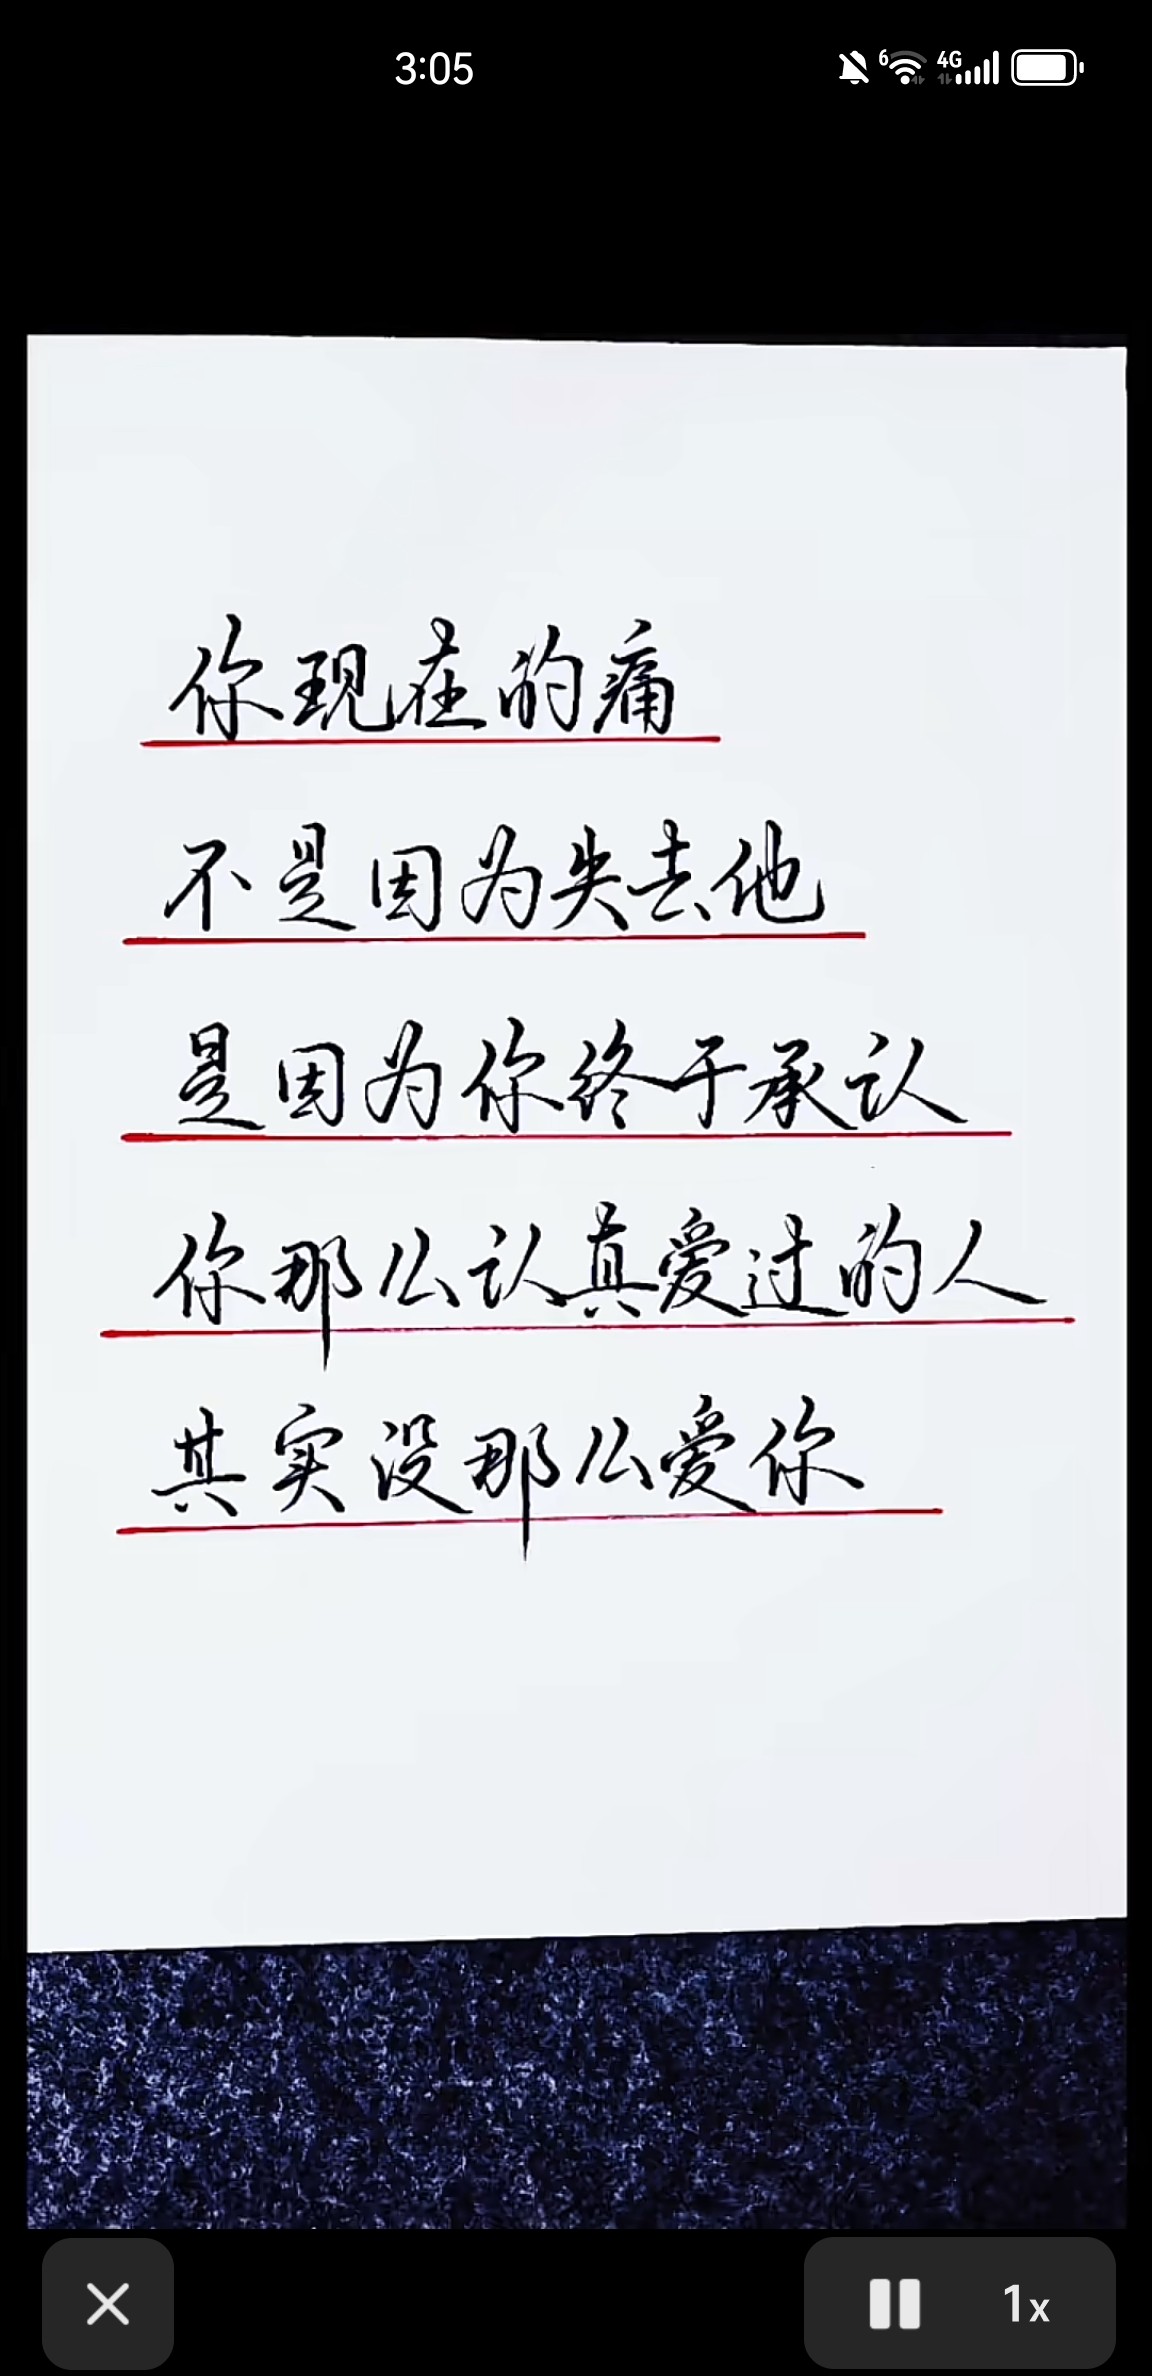 3:05
6
4G
你现在的痛
不是因为失去他
是因为你终于承认
你那么认真爱过的人
其实没那么爱你
1x